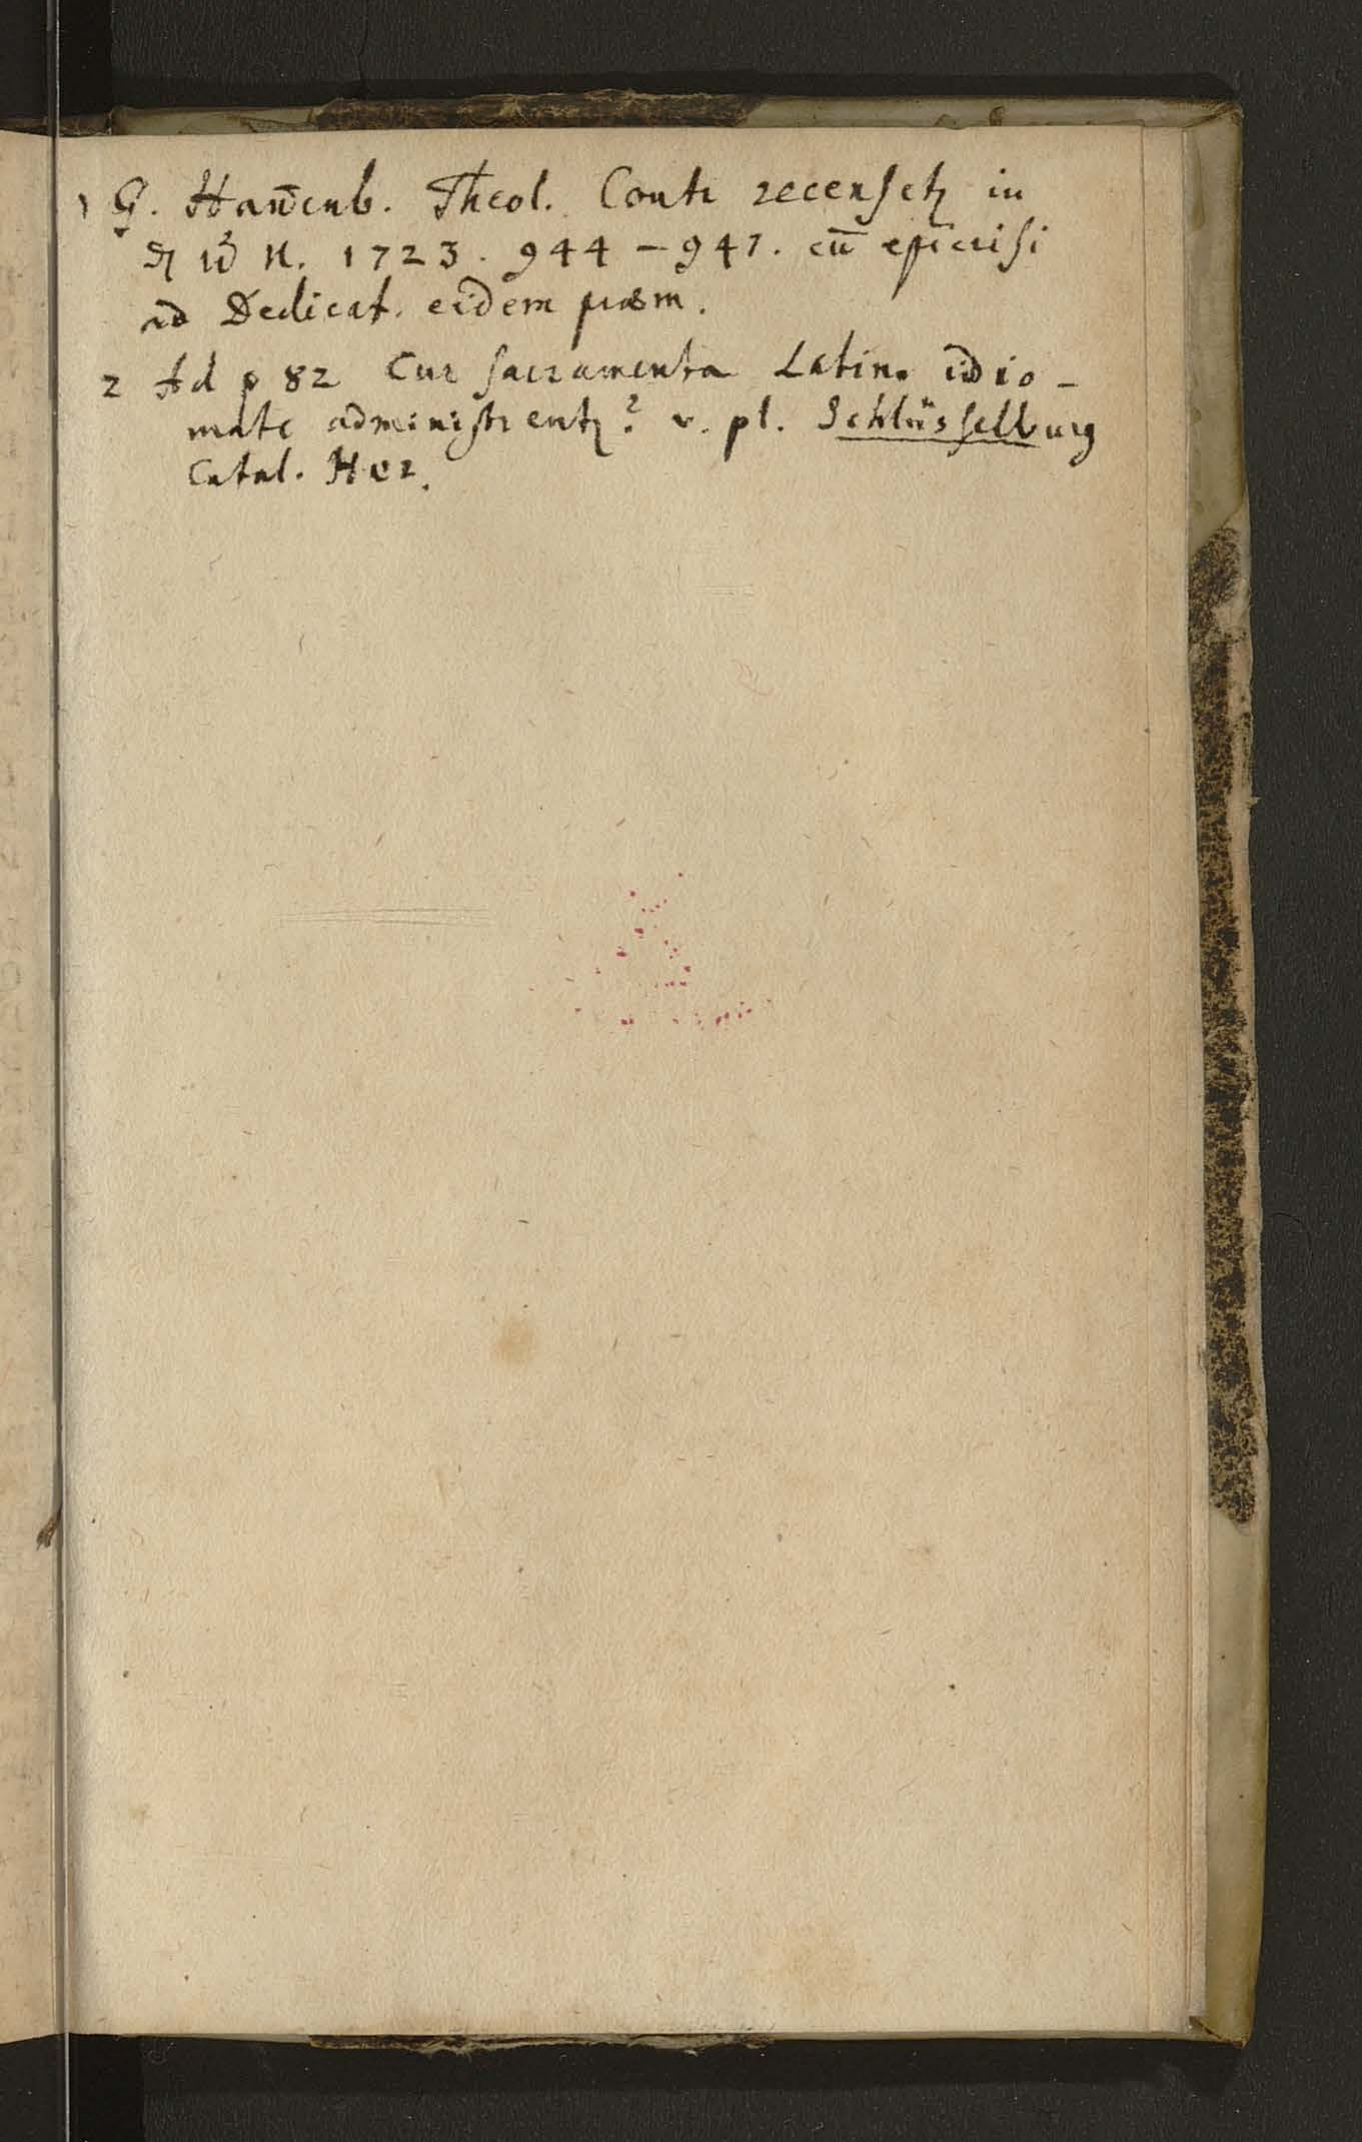 1 G. Han̄enb. Theol. Contr recensetꝫ in
N. 1723. 944-947. cū epicrisi
ad Dedicat. eidem præm.
2 Ad p 82 Cur sacramenta Latino idio-
mate administrentꝫ? v. pl. Schlüsselburg
Catal. Her.